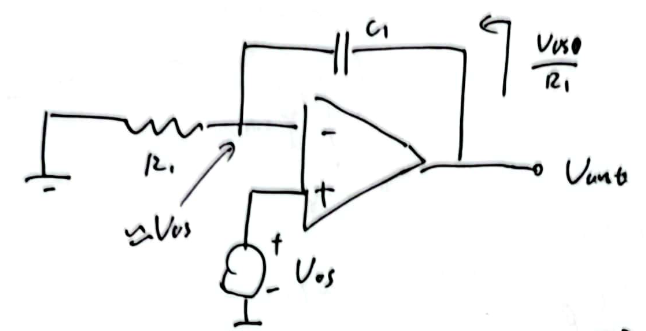 C1
Vos
R1
-
R1
+
Vout
≈Vos
+
- Vos